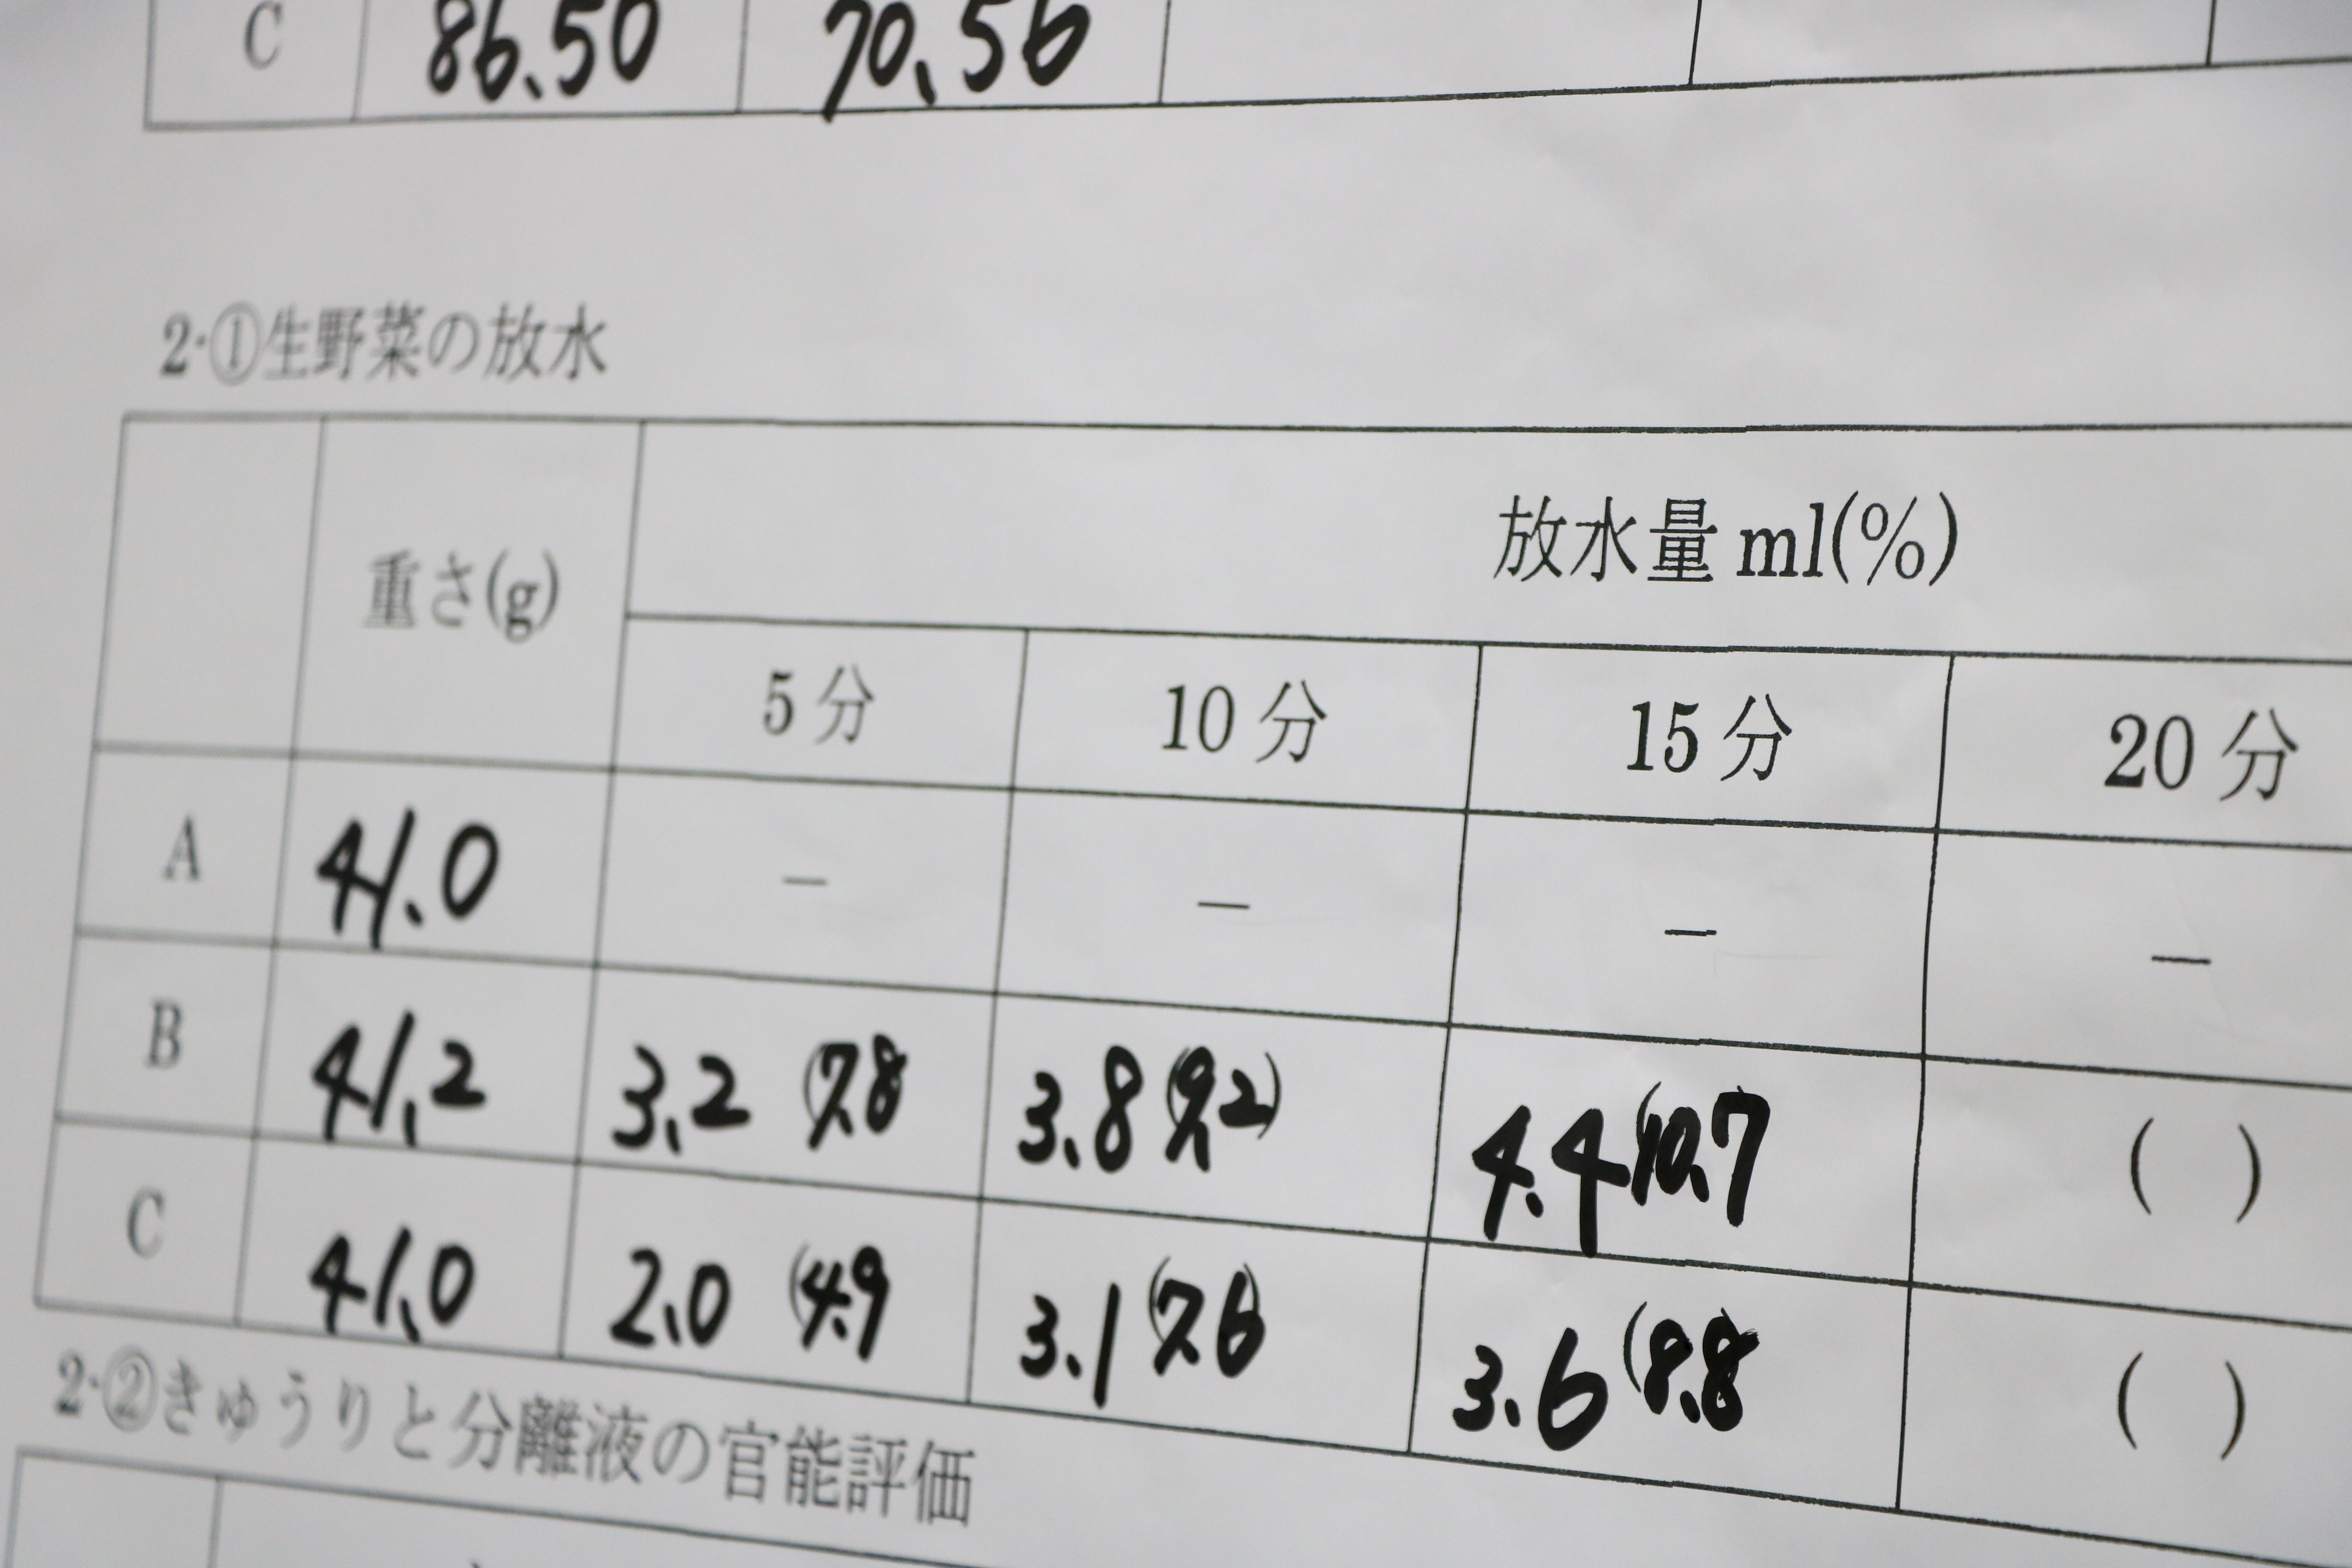 C 86.50 70.56
2·①生野菜の放水
重さ(g) 放水量 ml(%)
5分 10分 15分 20分
A 41.0 − − − −
B 41.2 3.2 (7.8 3.8 (9.2) 4.4 (10.7 ( )
C 41.0 2.0 (4.9 3.1 (7.6) 3.6 (8.8 ( )
2·②きゅうりと分離液の官能評価